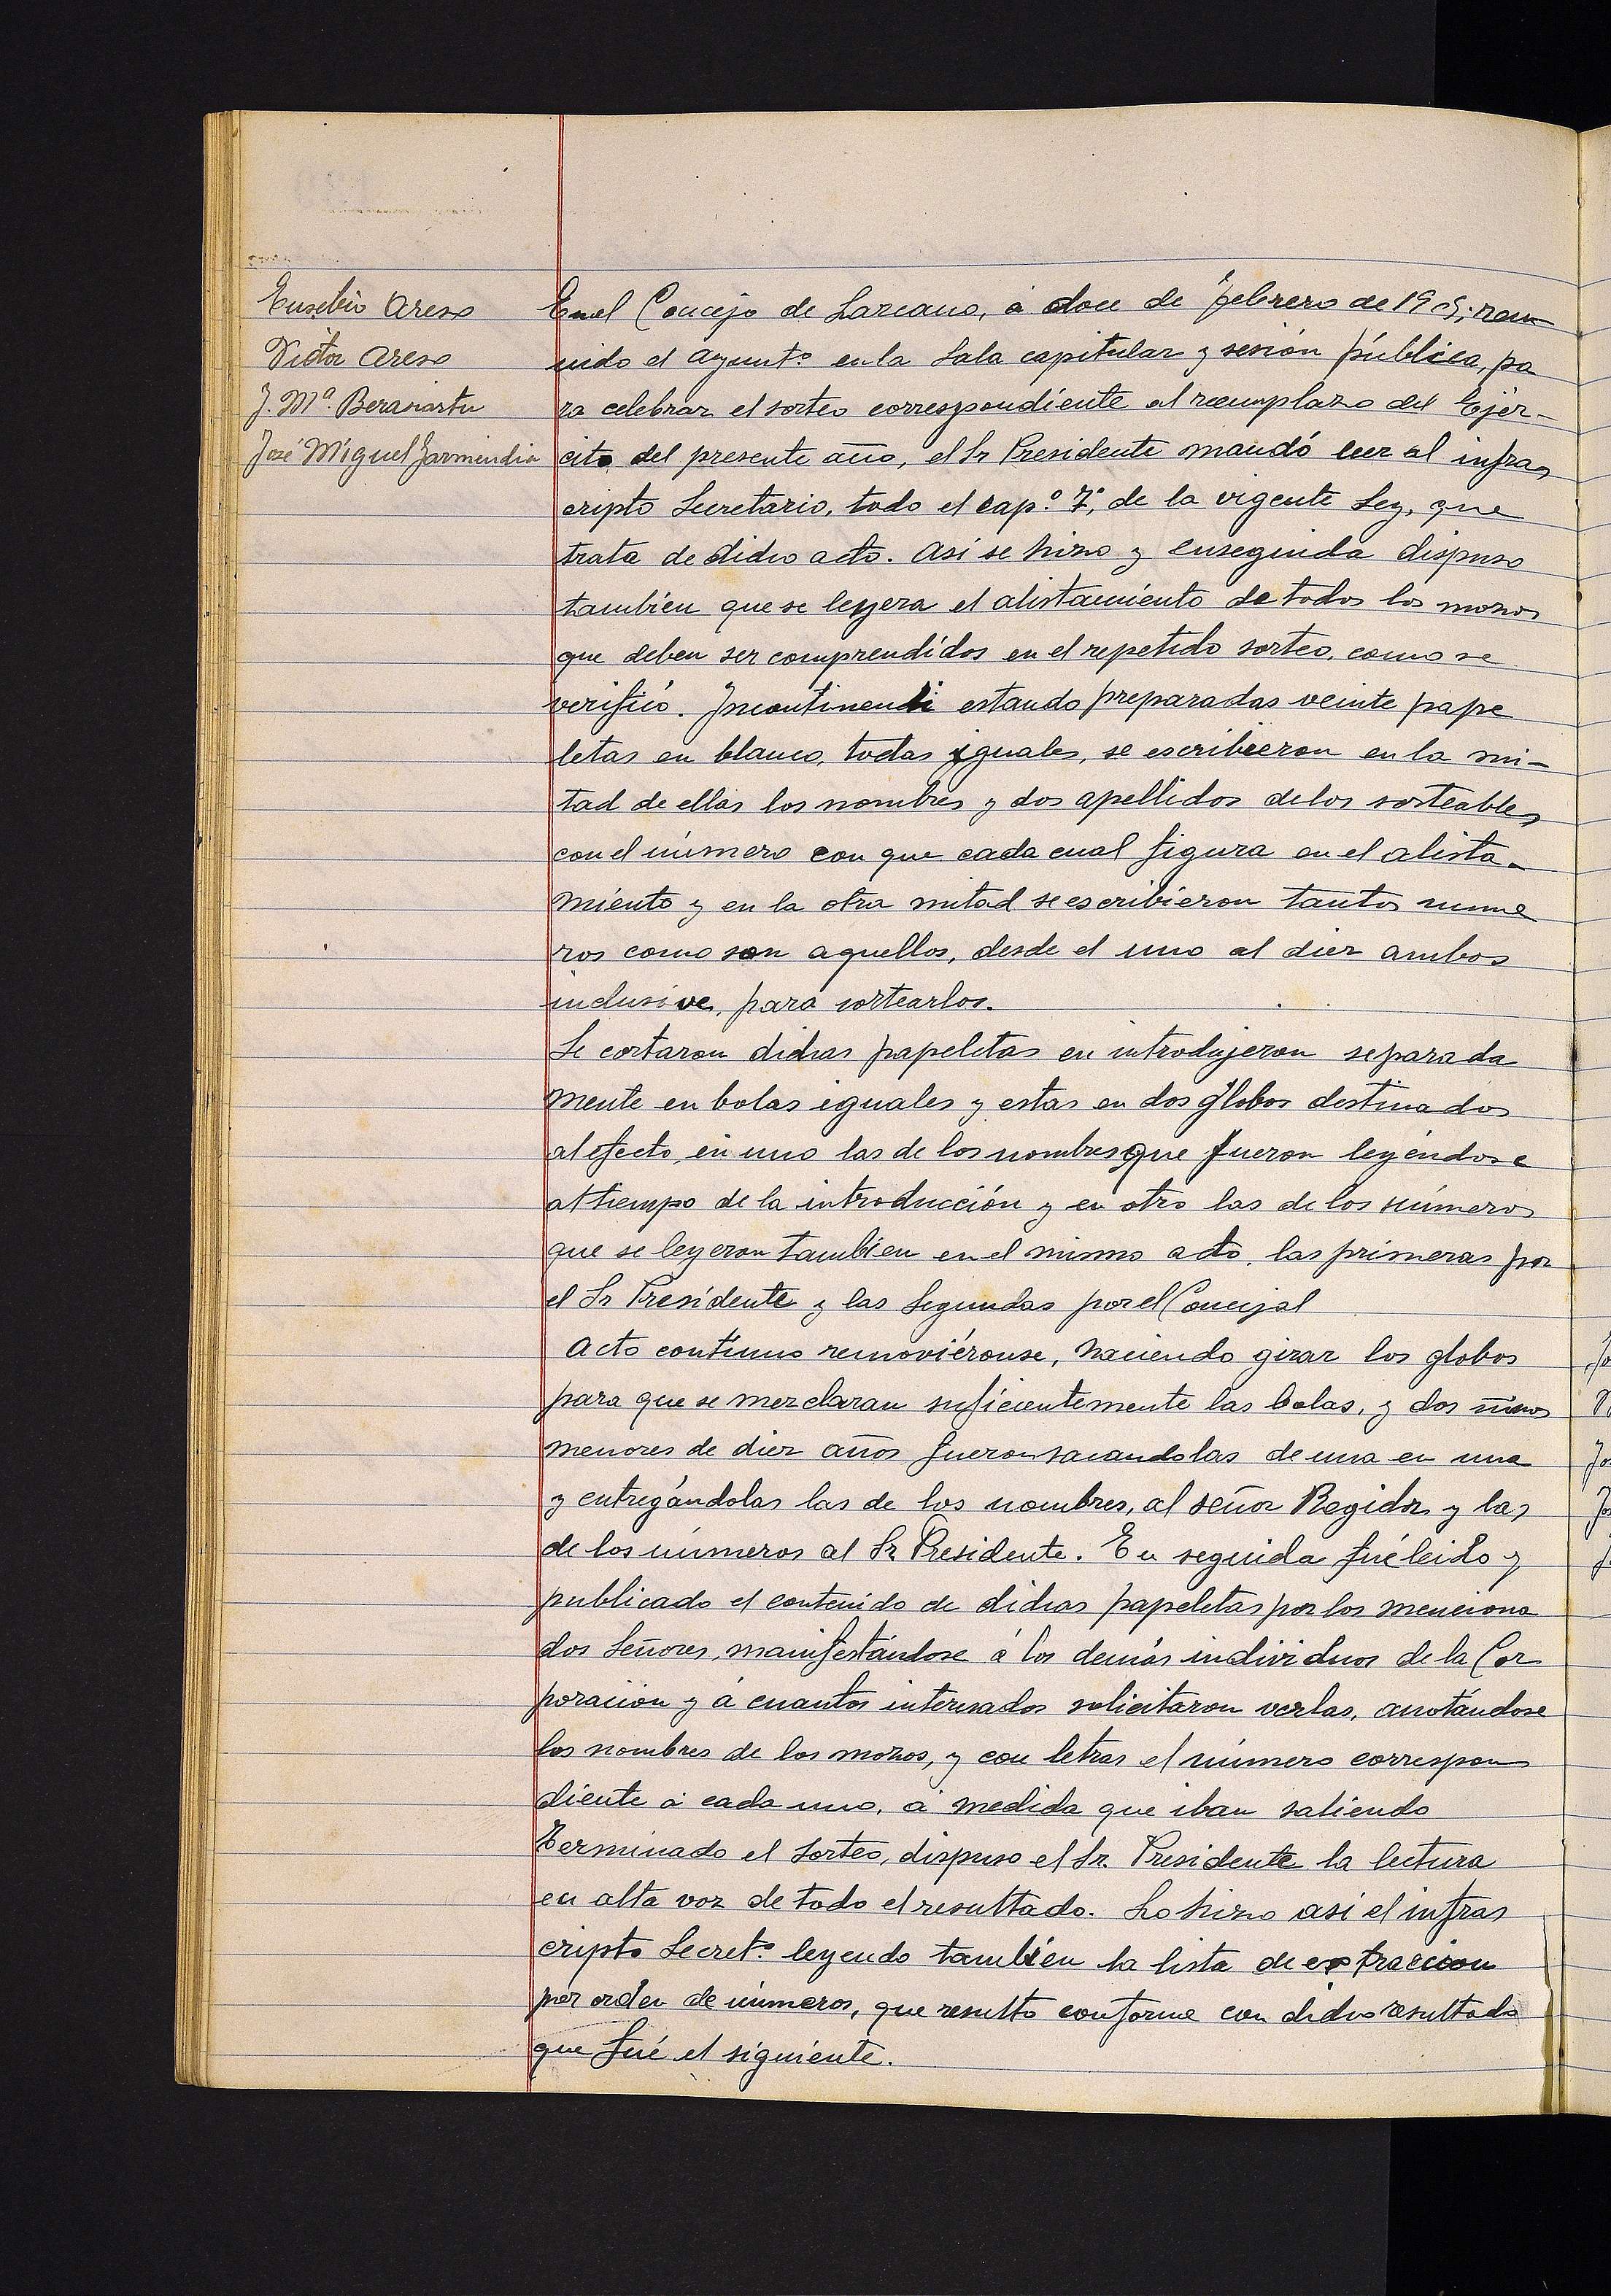 Eusebio Areso
Victor Areso
J. Mª. Berasiartu
José Miguel Garmendia
En el Concejo de Lazcano, á doce de febrero de 1905; reu
nido el Ayuntº en la Sala capitular y sesión pública, pa
ra celebrar el sorteo correspondiente al reemplazo del Ejér-
cito del presente año, el Sr Presidente mandó leer al infras
cripto Secretario, todo el cap.º 7º, de la vigente Ley, que
trata de dicho acto. Así se hizo y enseguida dispuso
tambien que se leyera el alistamiento de todos los mozos
que deben ser comprendidos en el repetido sorteo, como se
verificó. Incontinenti estando preparadas veinte pape
letas en blanco, todas iguales, se escribieron en la mi-
tad de ellas los nombres y dos apellidos de los sorteables
con el número con que cada cual figura en el alista-
miento y en la otra mitad se escribieron tantos nume
ros como son aquellos, desde el uno al diez ambos
inclusive, para sortearlos.
Se cortaron dichas papeletas en introdujeron separada
mente en bolas iguales y estas en dos globos destinados
al efecto, en uno las de los nombres que fueron leyéndose
al tiempo de la introducción y en otro las de los números
que se leyeron tambien en el mismo acto, las primeras por
el Sr Presidente y las segundas por el Concejal
Acto contínuo removiéronse, haciendo girar los globos
para que se mezclaran suficientemente las bolas, y dos niños
menores de diez años fueron sacandolas de una en una
y entregándolas las de los nombres, al señor Regidor y las
de los números al Sr Presidente. En seguida fué leido y
publicado el contenido de dichas papeletas por los menciona
dos Señores, manifestándose á los demás individuos de la Cor
poración y á cuantos interesados solicitaron verlas, anotándose
los nombres de los mozos, y con letras el número correspon
diente á cada uno, á medida que iban saliendo
Terminado el Sorteo, dispuso el Sr. Presidente la lectura
en alta voz de todo el resultado. Lo hizo así el infras
cripto Secretº leyendo también la lista de extraccion
por orden de números, que resultó conforme con dicho resultado
que fué el siguiente.